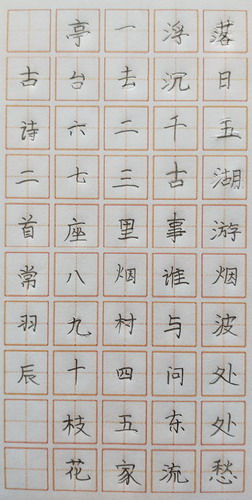 落日五湖游烟波处处愁
浮沉千古事谁与问东流
一去二三里烟村四五家
亭台六七座八九十枝花
古诗二首常羽辰